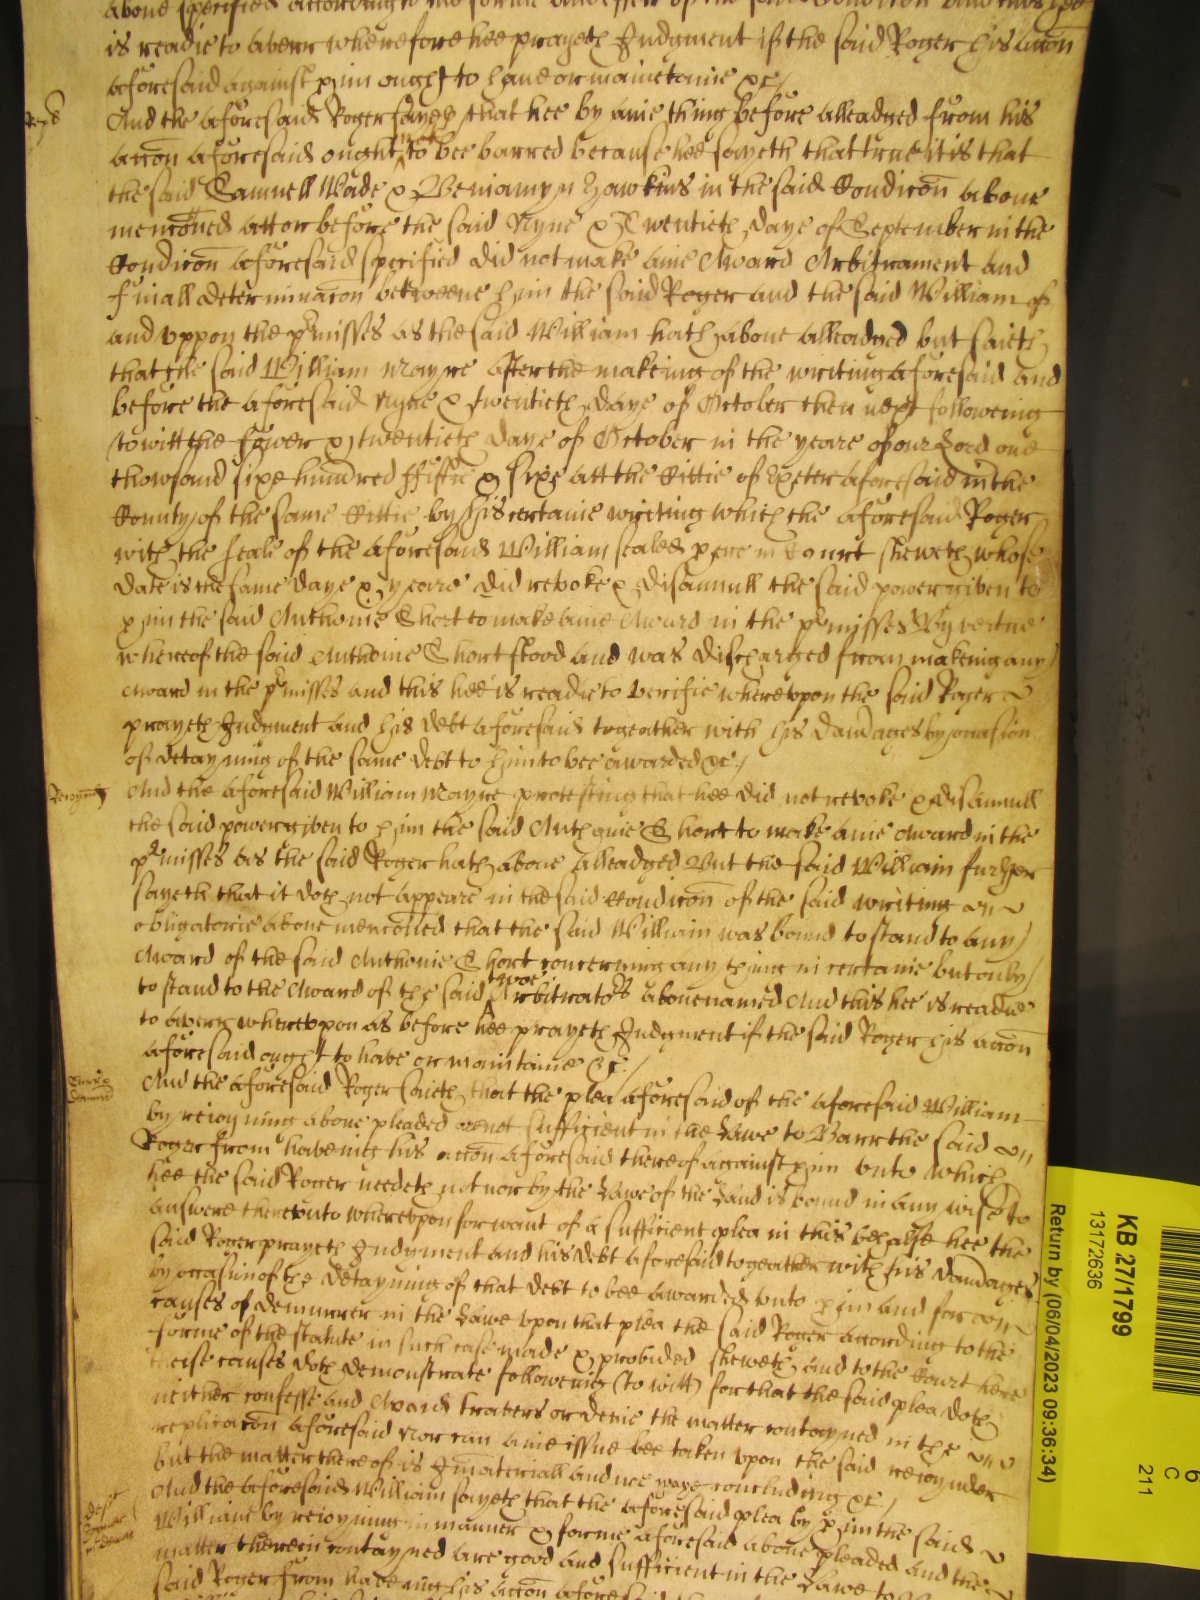 above specified according to the forme and effect of the said Condicon And this hee
is readie to averr wherefore hee prayeth Judgment if the said Roger his accon
aforesaid against him ought to have or mainetaine &c/
And the aforesaid Roger sayeth that hee by anie thing before alleadged from his
accon aforesaid ought not to bee barred because hee sayeth that true it is that
the said Samuell Wade & Beniamyn Hawkins in the said Condicon above
menconed att or before the said Nyne & Twentieth daye of September in the
Condicon aforesaid specified did not make anie Award Arbitrament and
finall determinacon betweene him the said Roger and the said William of
and vppon the pmisses as the said William hath above alleadged but saieth
that the said William Mayne after the makeing of the writing aforesaid and
before the aforesaid nyne & twentieth daye of October then next followeing
to witt the fower & twentieth daye of October in the yeare of our Lord one
thowsand sixe hundred ffiftie & sixe att the Cittie of Exeter aforesaid in the
County of the same Cittie by his certaine writing which the aforesaid Roger
with the seale of the aforesaid William sealed here in Court sheweth whose
date is the same daye & yeare did revoke & disannull the said power given to
him the said Anthonie Short to make anie Award in the pmisses By vertue
whereof the said Anthonie Short stood and was discharged from making any
Award in the pmisses and this hee is readie to verifie wherevpon the said Roger
prayeth Judgment and his debt aforesaid togeather with his damages by occasion
of detayning of the same debt to him to bee awarded &c/
And the aforesaid William Mayne protesting that hee did not revoke & disannull
the said power given to him the said Anthonie Short to make anie Award in the
pmisses as the said Roger hath above alleadged But the said William further
sayeth that it doth not appeare in the said Condicon of the said writing
obligatorie above menconed that the said William was bound to stand to any
Award of the said Anthonie Short concerning any thing in certaine but only
to stand to the Award of the said twoe Arbitrators abovenamed And this hee is readie
to averr wherevpon as before hee prayeth Judgment if the said Roger his accon
aforesaid ought to have or maintaine &c/
And the aforesaid Roger saieth that the plea aforesaid of the aforesaid William
by reioyning above pleaded are not sufficient in the Lawe to Barr the said
Roger from haveing his accon aforesaid thereof against him vnto which
hee the said Roger needeth not nor by the Lawe of the Land is bound in any wise to
answere therevnto wherevpon for want of a sufficient plea in this behalfe hee the
said Roger prayeth Judgment and his debt aforesaid togeather with his damages
by occasion of the detayning of that debt to bee awarded vnto him and for
causes of demurrer in the Lawe vpon that plea the said Roger according to the
forme of the statute in such case made & provided sheweth and to the Court here
these causes doth demonstrate followeing (to witt) for that the said plea doth
neither confesse and Avoid travers or denie the matter contayned in the
replicacon aforesaid Nor can anie issue bee taken vpon the said reioynder
but the matter thereof is Jmateriall and noe waye concluding &c/
And the aforesaid William sayeth that the aforesaid plea by him the said
William by reioyning in manner & forme aforesaid above pleaded and the
matter therein contayned are good and sufficient in the Lawe to
said Roger from haveing his accon aforesaid
KB 27/1799
13172636
Return by (06/04/2023 09:36:34)
6
C
211